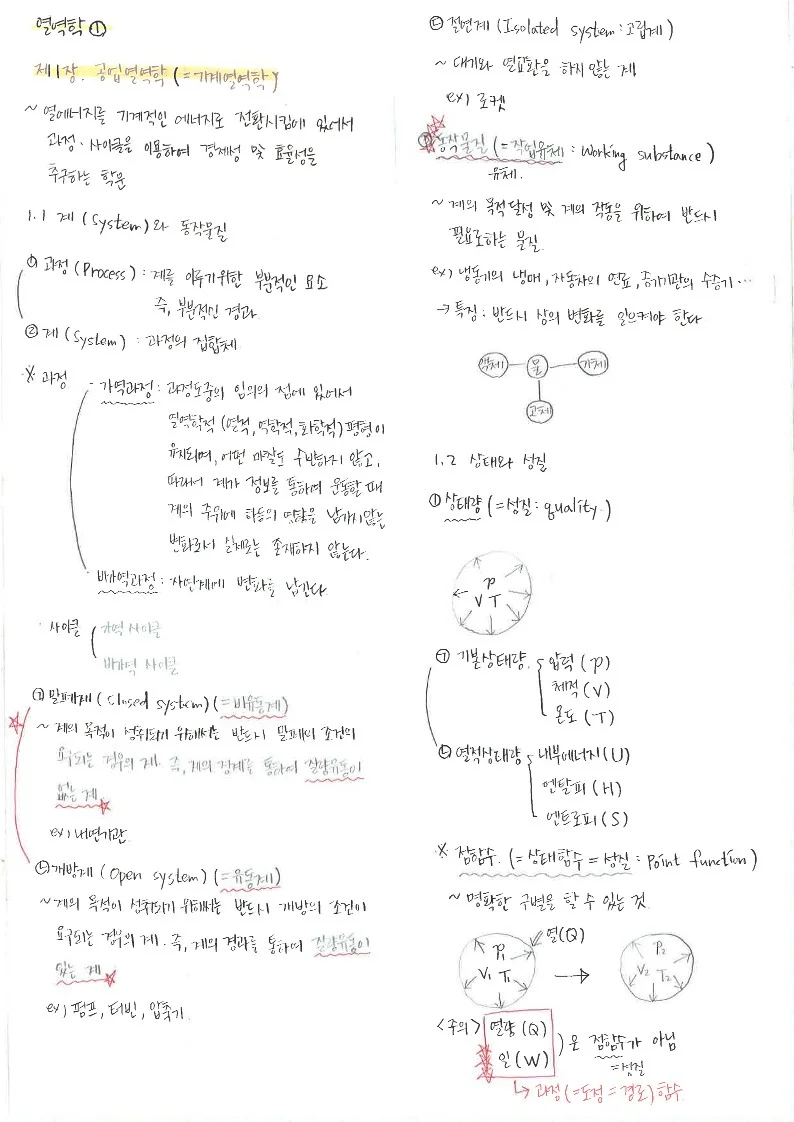 열역학 ①
제1장. 공업열역학 (=기계열역학)
~ 열에너지를 기계적인 에너지로 전환시킴에 있어서
과정·사이클을 이용하여 경제성 및 효율성을
추구하는 학문
1.1 계 (System)와 동작물질
① 과정 (Process) : 계를 이루기위한 부분적인 요소
즉, 부분적인 경과
② 계 (System) : 과정의 집합체
※ 과정
· 가역과정 : 과정도중의 임의의 점에 있어서
열역학적 (열적, 역학적, 화학적) 평형이
유지되며, 어떤 마찰도 수반하지 않고,
따라서 계가 정보를 통하여 운동할 때
계의 주위에 하등의 영향을 남기지않는
변화로서 실제로는 존재하지 않는다.
· 비가역과정 : 자연계에 변화를 남긴다
· 사이클
가역 사이클
비가역 사이클
㉠ 밀폐계 (Closed system) (=비유동계)
~ 계의 목적이 성취되기 위해서는 반드시 밀폐의 조건이
요구되는 경우의 계. 즉, 계의 경계를 통하여 질량유동이
없는 계
ex) 내연기관
㉡ 개방계 (Open system) (=유동계)
~ 계의 목적이 성취되기 위해서는 반드시 개방의 조건이
요구되는 경우의 계. 즉, 계의 경과를 통하여 질량유동이
있는 계
ex) 펌프, 터빈, 압축기
㉢ 절연계 (Isolated system : 고립계)
~ 대기와 열교환을 하지 않는 계
ex) 로켓
동작물질 (=작업유체 : Working substance)
유체.
~ 계의 목적달성 및 계의 작동을 위하여 반드시
필요로하는 물질.
ex) 냉동기의 냉매, 자동차의 연료, 증기기관의 수증기…
→ 특징 : 반드시 상의 변화를 일으켜야 한다
액체 물 기체
고체
1.2 상태와 성질
① 상태량 (=성질 : quality)
P
V T
㉠ 기본상태량
압력 (P)
체적 (V)
온도 (T)
㉡ 열적상태량
내부에너지 (U)
엔탈피 (H)
엔트로피 (S)
※ 점함수. (=상태함수=성질 : Point function)
~ 명확한 구별을 할 수 있는 것.
열(Q)
P₁
V₁ T₁
→
P₂
V₂ T₂
<주의> 열량 (Q)
일 (W)
은 점함수가 아님
=성질
↳ 과정 (=도정=경로) 함수